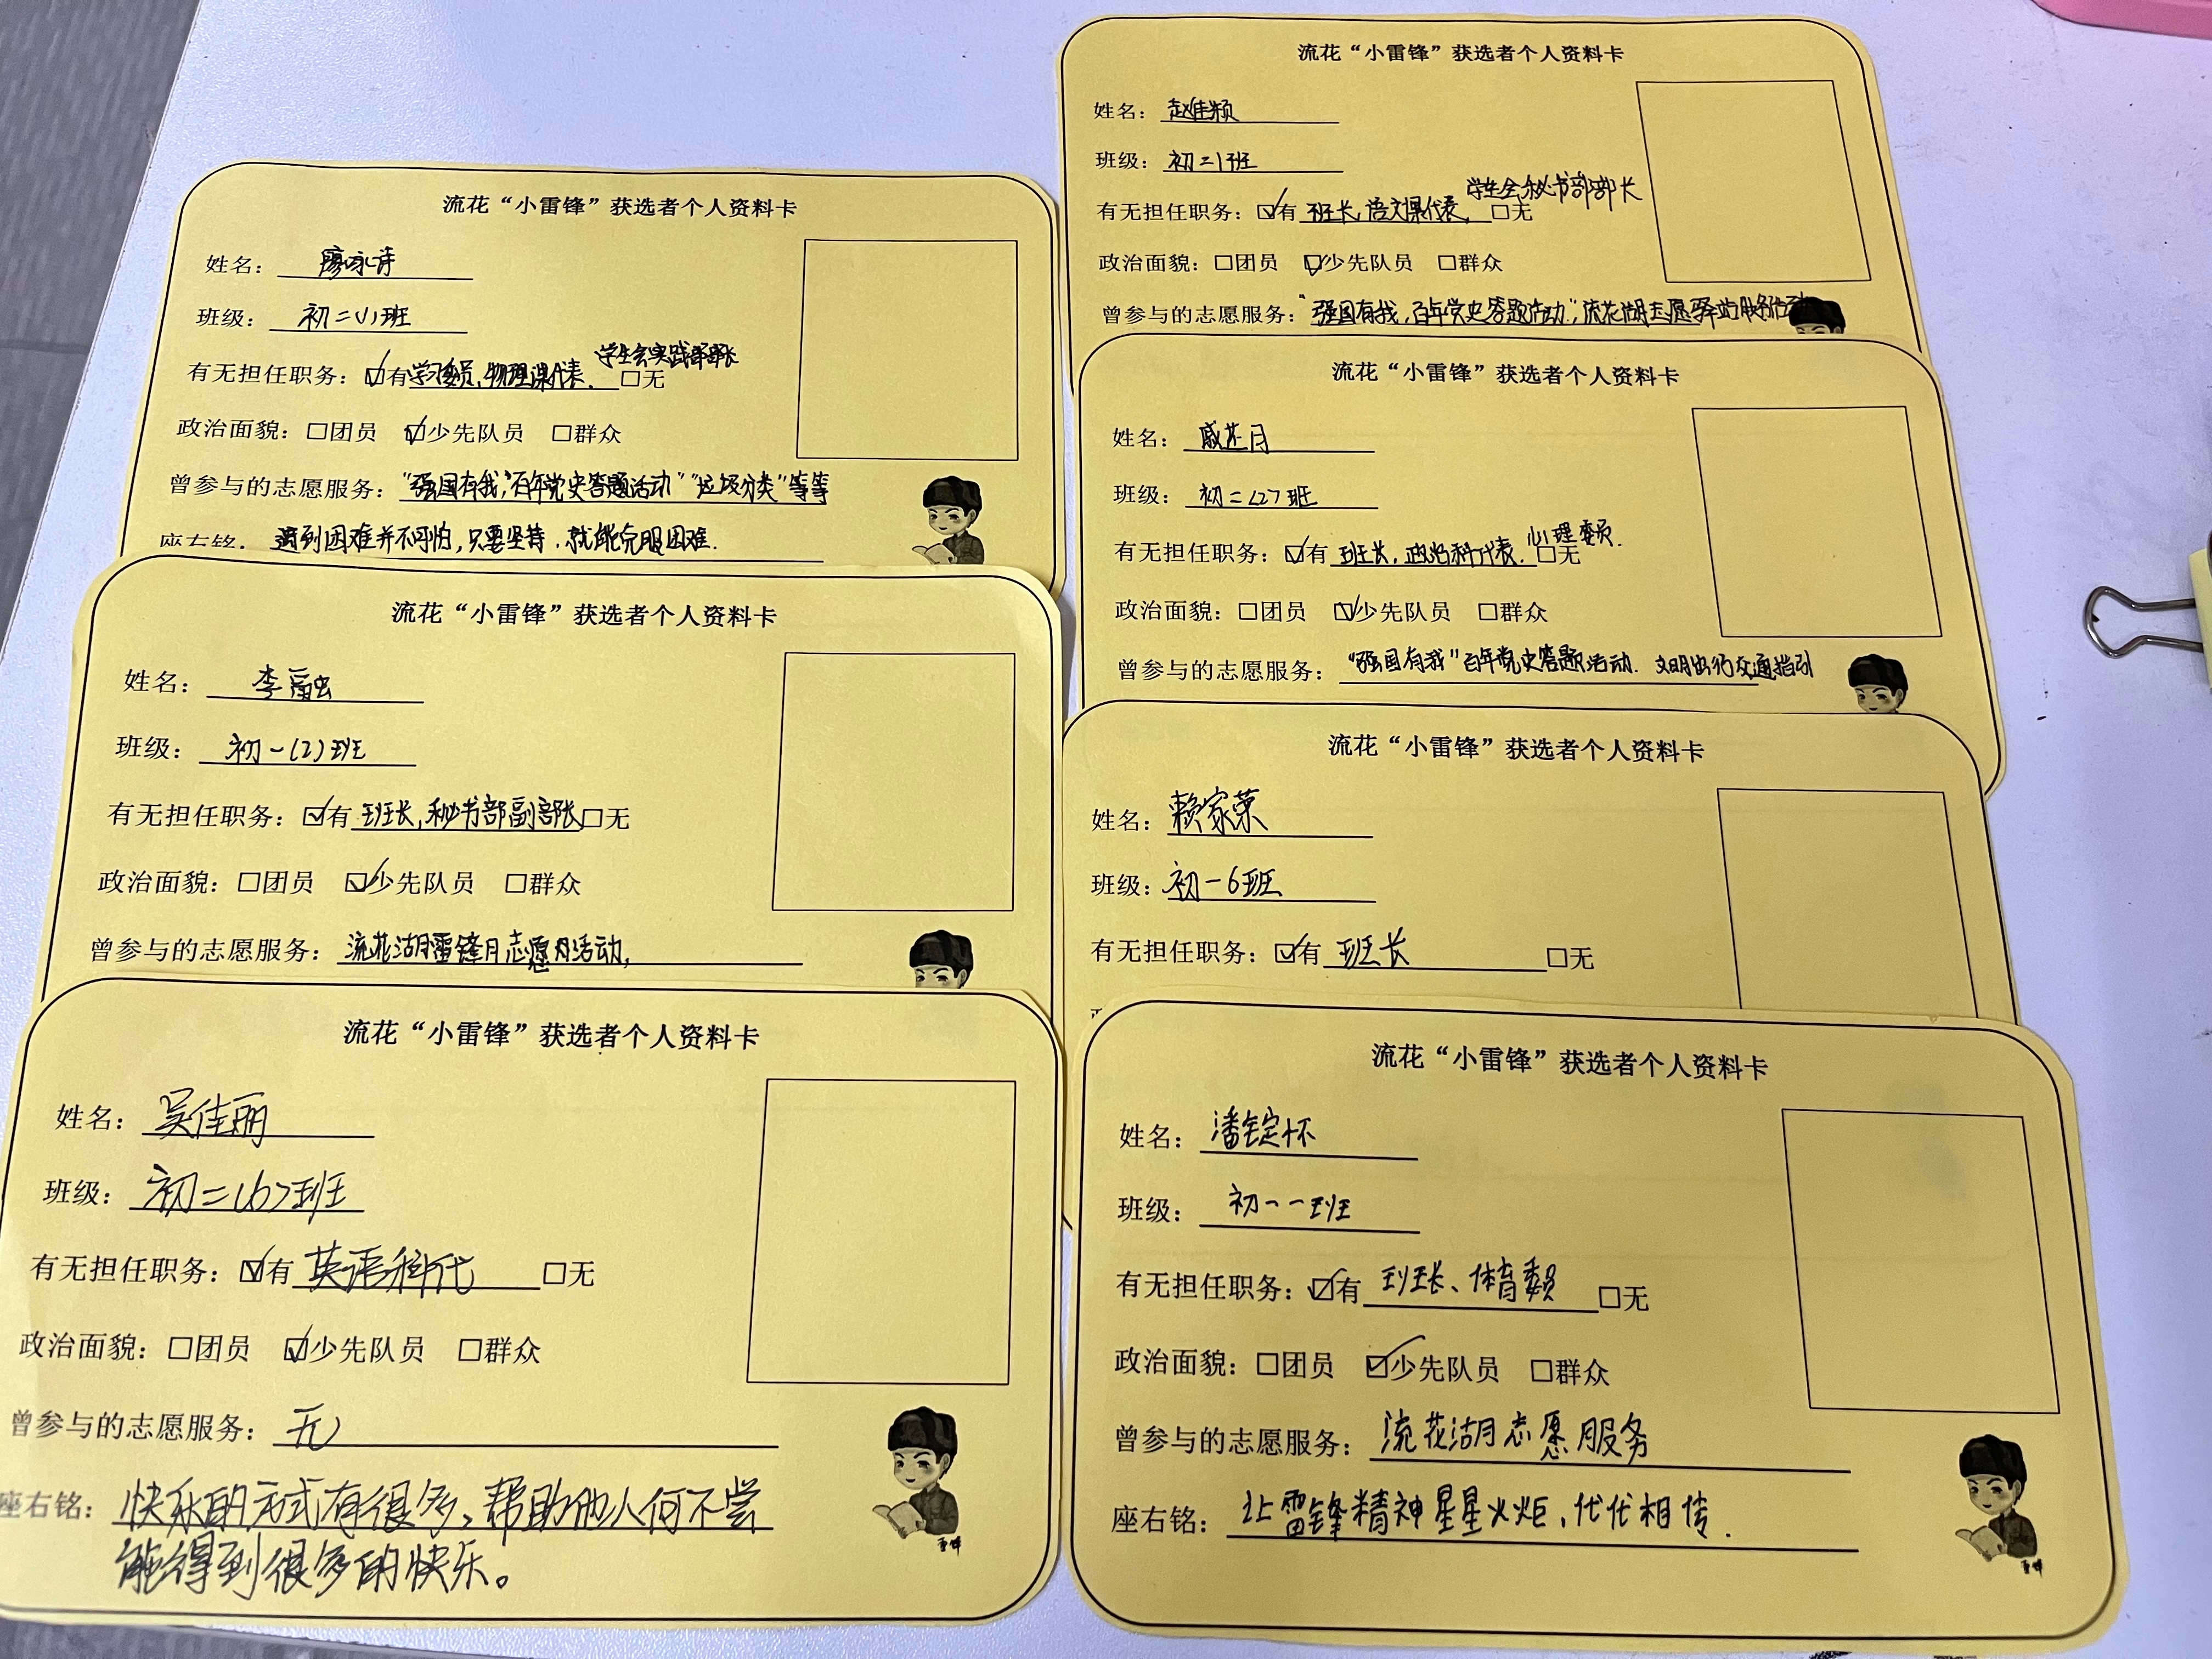 流花“小雷锋”获选者个人资料卡
姓名：廖咏诗
班级：初二(1)班
学生会实践部部长
有无担任职务：☑有 学习委员，物理课代表， □无
政治面貌：□团员 ☑少先队员 □群众
曾参与的志愿服务：“强国有我，百年党史答题活动”“垃圾分类”等等
座右铭： 遇到困难并不可怕，只要坚持，就能克服困难．
流花“小雷锋”获选者个人资料卡
姓名：李
班级：初一(2)班
有无担任职务：☑有 班长，秘书部副部长 □无
政治面貌：□团员 ☑少先队员 □群众
曾参与的志愿服务：流花湖雷锋月志愿 活动，
流花“小雷锋”获选者个人资料卡
姓名：吴佳丽
班级：初二(6)班
有无担任职务：☑有 英语科代 □无
政治面貌：□团员 ☑少先队员 □群众
曾参与的志愿服务：无
座右铭：快乐的方式有很多，帮助他人何不尝
能得到很多的快乐。
流花“小雷锋”获选者个人资料卡
姓名：赵佳颖
班级：初二1班
学生会秘书部部长
有无担任职务：☑有 班长，语文课代表， □无
政治面貌：□团员 ☑少先队员 □群众
曾参与的志愿服务：“强国有我，百年党史答题活动”，流花湖志愿驿站服务活动
流花“小雷锋”获选者个人资料卡
姓名：戚芷月
班级：初二<2>班
心理委员．
有无担任职务：☑有 班长，政治科代表． □无
政治面貌：□团员 ☑少先队员 □群众
曾参与的志愿服务：“强国有我”百年党史答题活动．文明出行交通指引
流花“小雷锋”获选者个人资料卡
姓名：赖家荣
班级：初一6班
有无担任职务：☑有 班长 □无
流花“小雷锋”获选者个人资料卡
姓名：潘锭怀
班级：初一一班
有无担任职务：☑有 班长、体育委员 □无
政治面貌：□团员 ☑少先队员 □群众
曾参与的志愿服务：流花湖志愿服务
座右铭：让雷锋精神星星火炬，代代相传．
雷锋
雷锋